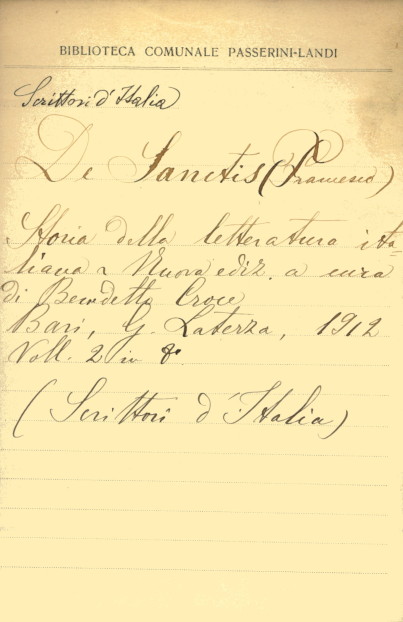 BIBLIOTECA COMUNALE PASSERINI-LANDI
Scrittori d'Italia
De Sanctis (Francesco)
Storia della letteratura ita=
liana Nuova ediz. a cura
di Benedetto Croce
Bari, G. Laterza, 1912
Voll. 2 in 8°
(Scrittori d'Italia)